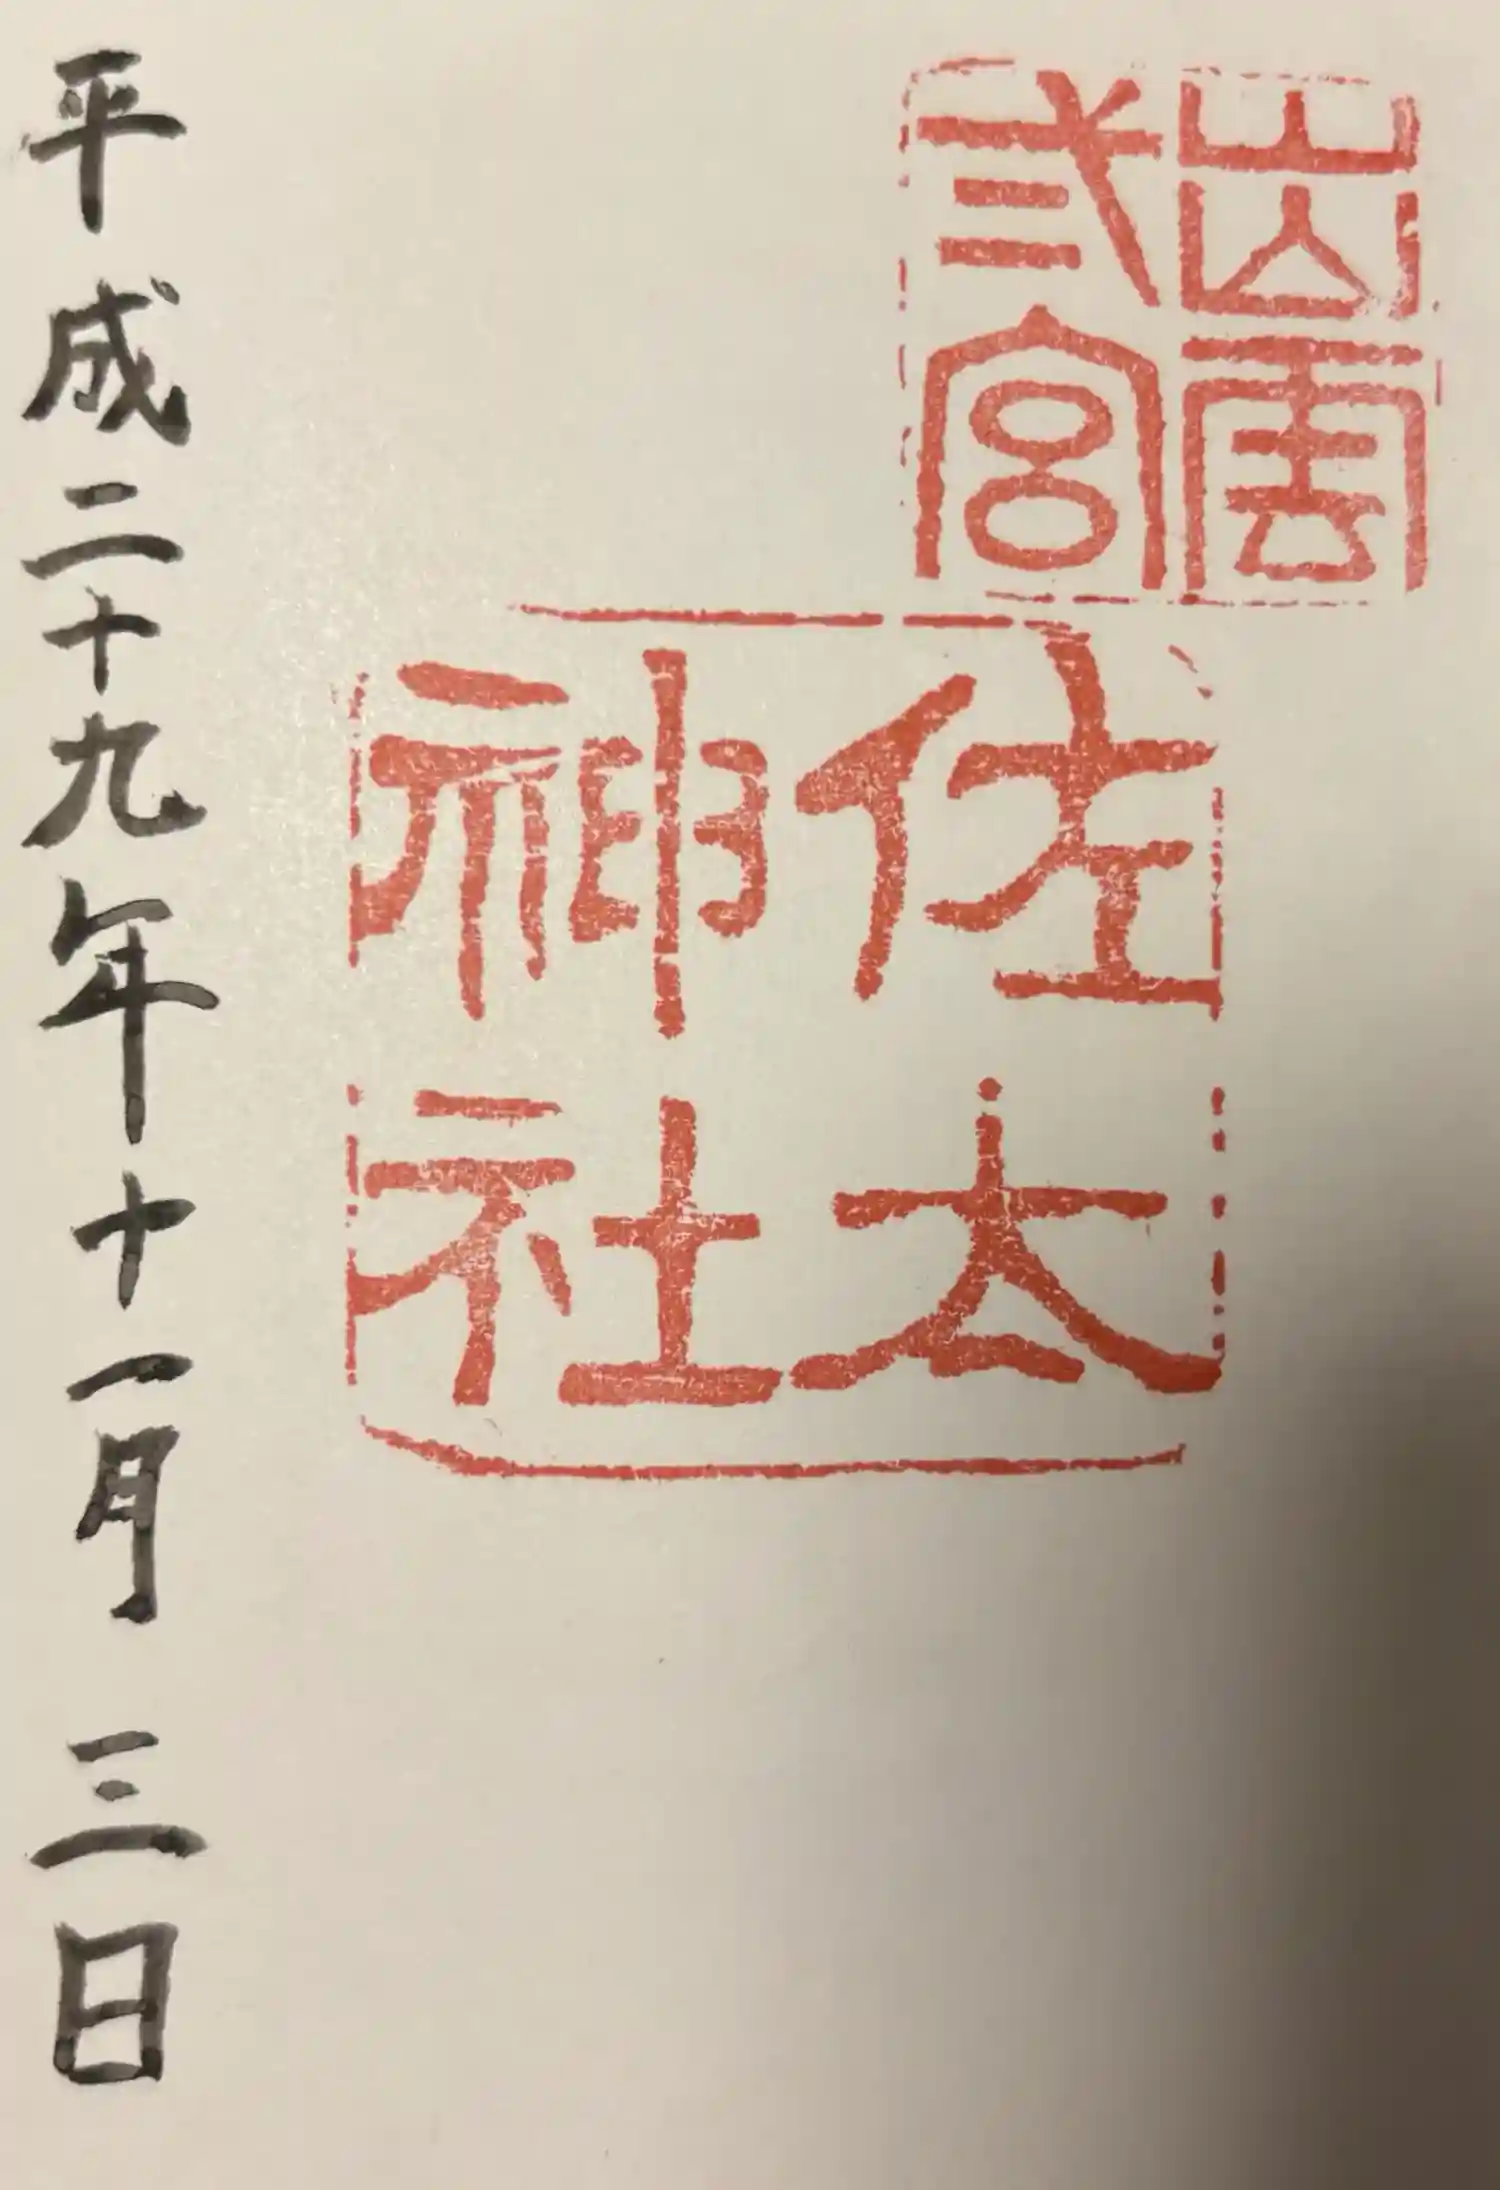 出雲
弐宮
佐太
神社
平成二十九年十一月三日